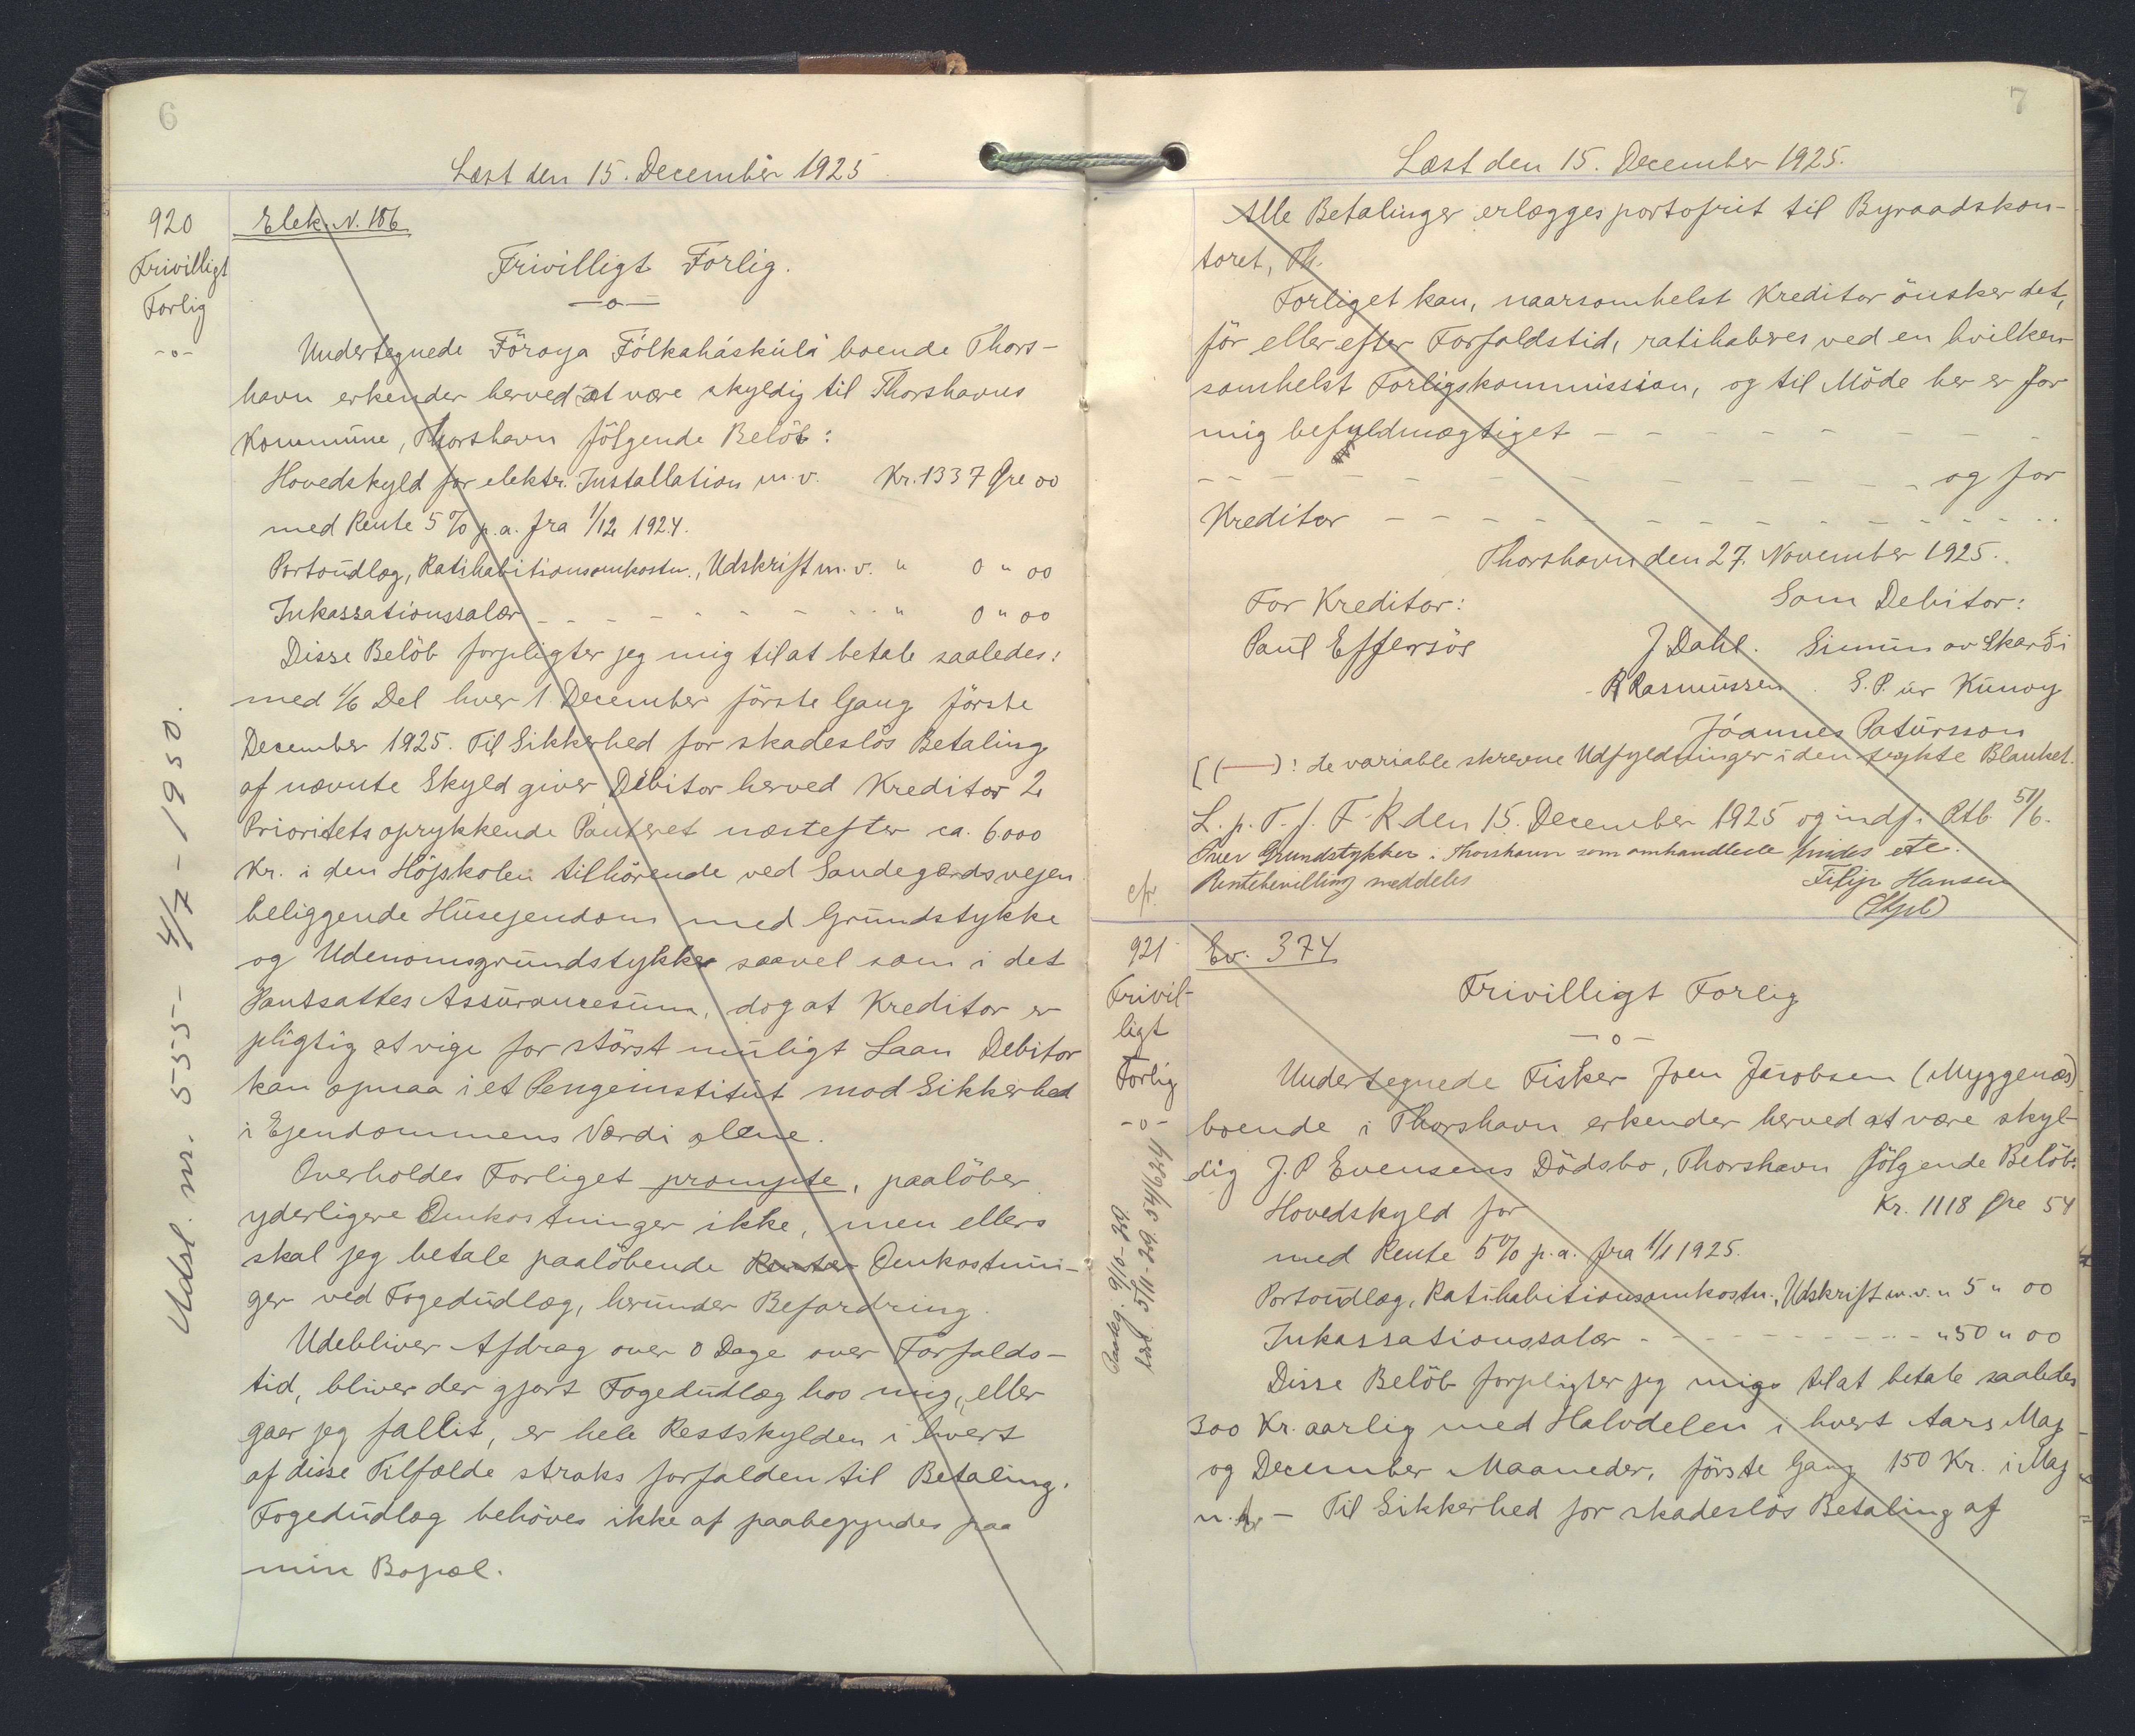 6
Læst den 15. December 1925
920
Frivilligt
Forlig
-o-
Elek. N. 186
Frivilligt Forlig.
—o—
Undertegnede Föroya Fólkaháskúla boende Thors-
havn erkender herved at være skyldig til Thorshavns
Kommune, Thorshavn fölgende Belöb:
Hovedskyld for elektr. Installation m.v. Kr. 1337 Øre 00
med Rente 5% p.a. fra 1/12 1924.
Portoudlæg, Ratihabitionsomkostn., Udskrift m.v. " 0 " 00
Inkassationssalær - - - - - - - " 0 " 00
Disse Belöb forpligter jeg mig til at betale saaledes:
med 1/6 Del hver 1 December förste Gang förste
December 1925. Til Sikkerhed for skadeslös Betaling
af nævnte Skyld giver Debitor herved Kreditor 2
Prioritets oprykkende Panteret næstefter ca. 6000
Kr. i den Höjskolen tilhörende ved Sandegærdsvejen
beliggende Husejendom med Grundstykke
og Udenomsgrundstykke saavel som i det
Pantsattes Assurancesum, dog at Kreditor er
pligtig at vige for störst muligt Laan Debitor
kan opnaa i et Pengeinstitut mod Sikkerhed
i Ejendommens Værdi alene.
Overholdes Forliget prompte, paalöber
yderligere Omkostninger ikke, men ellers
skal jeg betale paalöbende Renter Omkostnin-
ger ved Fogedudlæg, herunder Befordring.
Udebliver Afdrag over 0 Dage over Forfalds-
tid, bliver der gjort Fogedudlæg hos mig, eller
gaar jeg fallit, er hele Restskylden i hvert
af disse Tilfælde straks forfalden til Betaling.
Fogedudlæg behöves ikke af paabegyndes paa
min Bopæl.
Udsl. nr. 555- 4/7-1950.
7
Læst den 15. December 1925.
Alle Betalinger erlægges portofrit til Byraadskon-
toret, Th.
Forliget kan, naarsomhelst Kreditor önsker det,
för eller efter Forfaldstid, ratihaberes ved en hvilken-
somhelst Forligskommission, og til Möde her er for
mig befuldmægtiget - - - - - - -
- - - - - - - - - - - og for
Kreditor - - - - - - - - - - -
Thorshavn den 27. November 1925.
For Kreditor: Som Debitor:
Paul Effersöe J Dahl. Simun av Skarði
R Rasmussen. S. P. úr Kunoy
Jóannes Patursson
[(—): de variable skrevne Udfyldninger i den trykte Blanket.
L. p. T. f. F. R den 15. December 1925 og indf. i Ptb 51/6.
Flere Grundstykker i Thorshavn som omhandlede findes etc.
Rentebevilling meddeles Filip Hansen
cfr. (Skpl)
921
Frivil-
ligt
Forlig
-o-
Ev. 374
Frivilligt Forlig
—o—
Undertegnede Fisker Joen Jacobsen (Myggenæs)
boende i Thorshavn erkender herved at være skyl-
dig J. P Evensens Dödsbo, Thorshavn fölgende Belöb:
Hovedskyld for Kr. 1118 Øre 54
med Rente 5% p.a. fra 1/1 1925.
Portoudlæg, Ratihabitionsomkostn., Udskrift m.v. " 5 " 00
Inkassationssalær - - - - - - - " 50 " 00
Disse Belöb forpligter jeg mig til at betale saaledes
300 Kr. aarlig med Halvdelen i hvert Aars Maj
og December Maaneder, förste Gang 150 Kr. i Maj
n. A. — Til Sikkerhed for skadeslös Betaling af